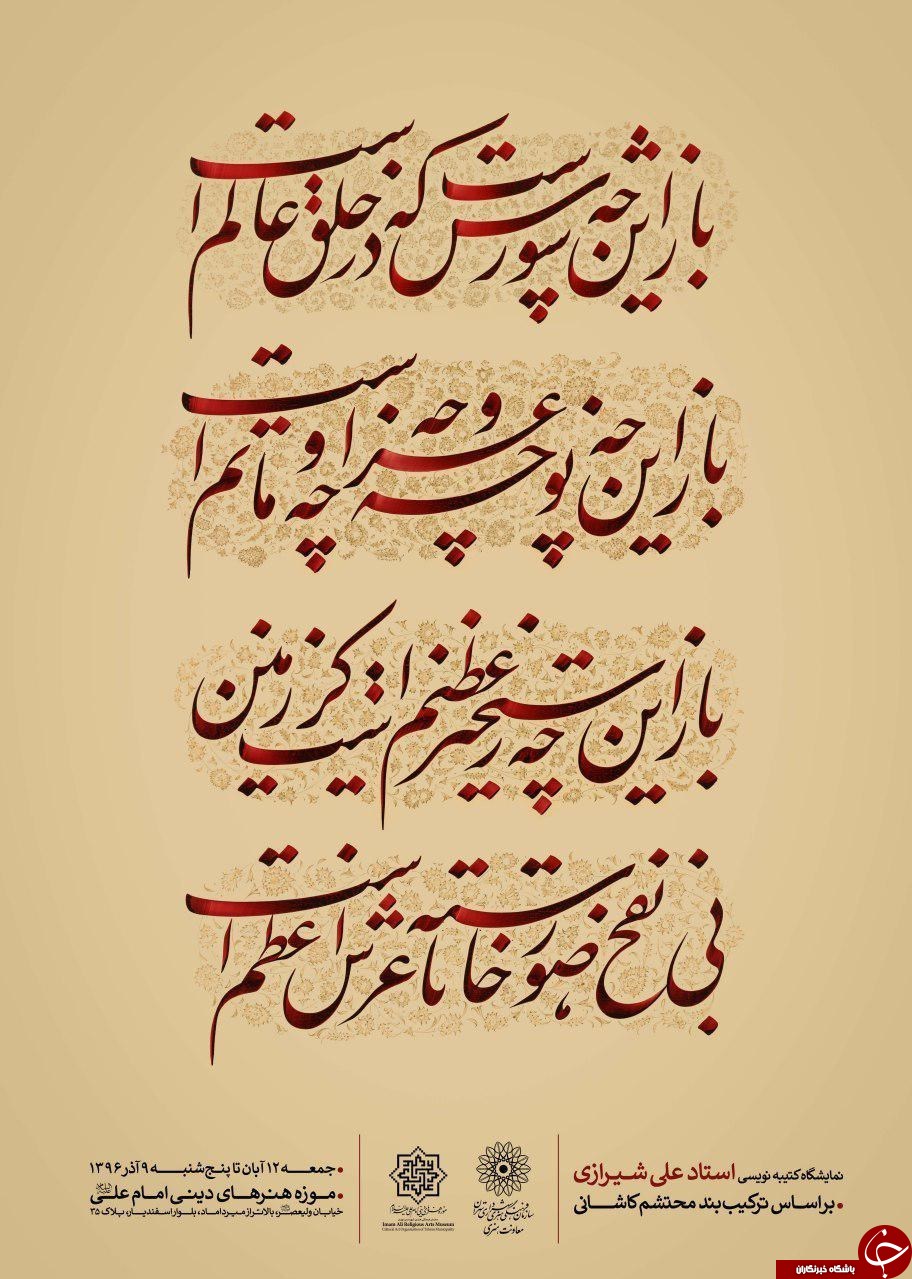 باز این چه شورش است که در خلق عالم است
باز این چه نوحه و چه عزا و چه ماتم است
باز این چه رستخیز عظیم است کز زمین
بی نفخ صور خاسته تا عرش اعظم است
نمایشگاه کتیبه نویسی استاد علی شیرازی
• براساس ترکیب بند محتشم کاشانی
سازمان فرهنگی هنری شهرداری تهران
معاونت هنری
موزه هنرهای دینی امام علی
Imam Ali Religious Arts Museum
Cultural Art Organization of Tehran Municipality
• جمعه ۱۲ آبان تا پنج شنبه ۹ آذر ۱۳۹۶
• موزه هنرهای دینی امام علی
خیابان ولیعصر، بالاتر از میرداماد، بلوار اسفندیار، پلاک ۳۵
باشگاه خبرنگاران